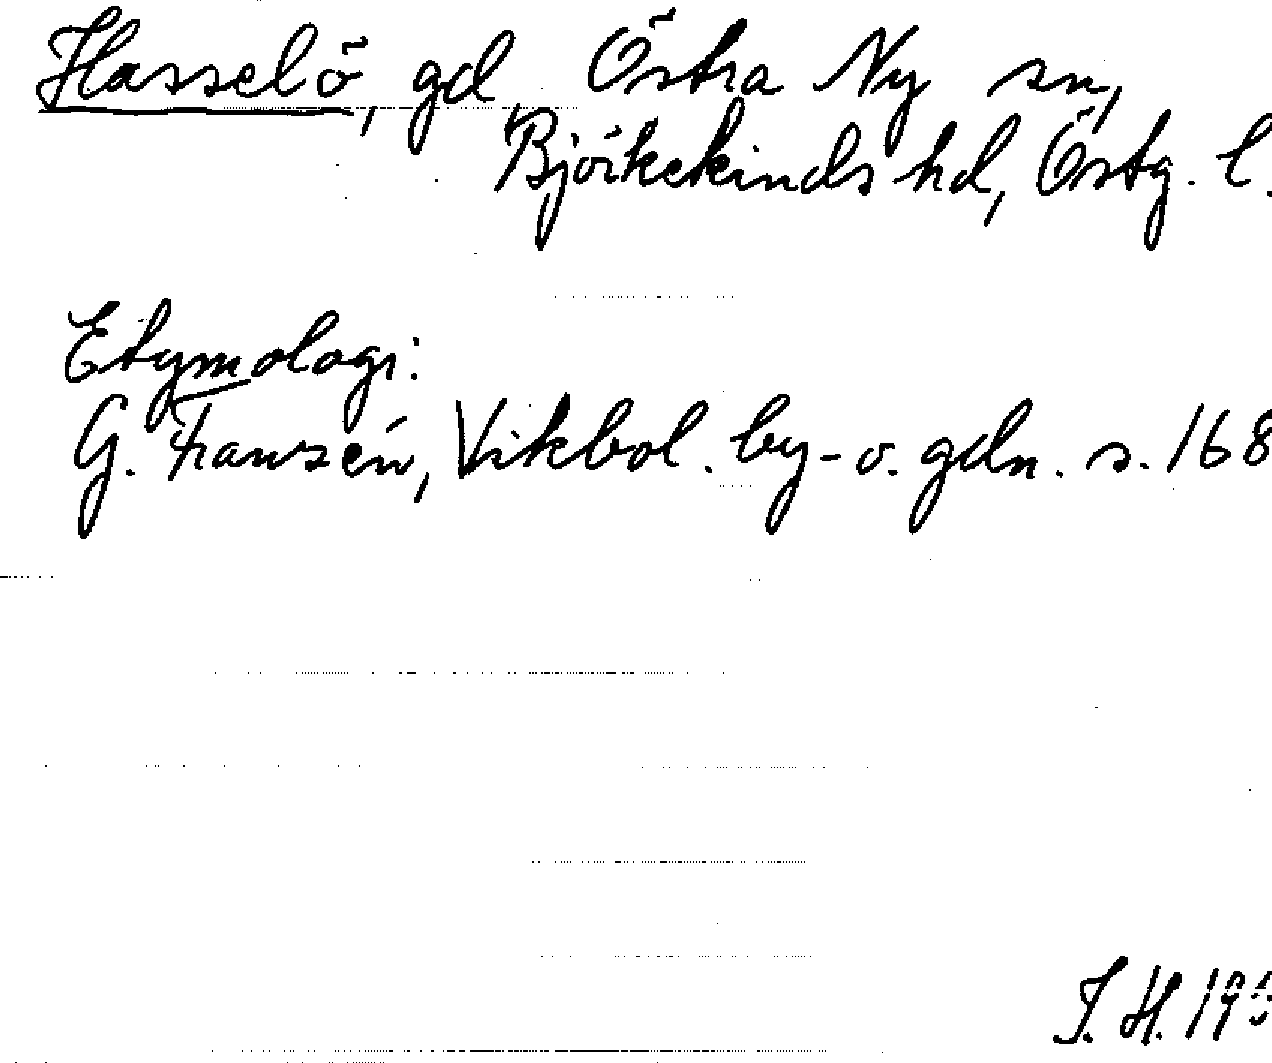 Hasselö, gd, Östra Ny sn,
Björkekinds hd, Östg. l.
Etymologi:
G. Franzén, Vikbol. by- o. gdn. s. 168